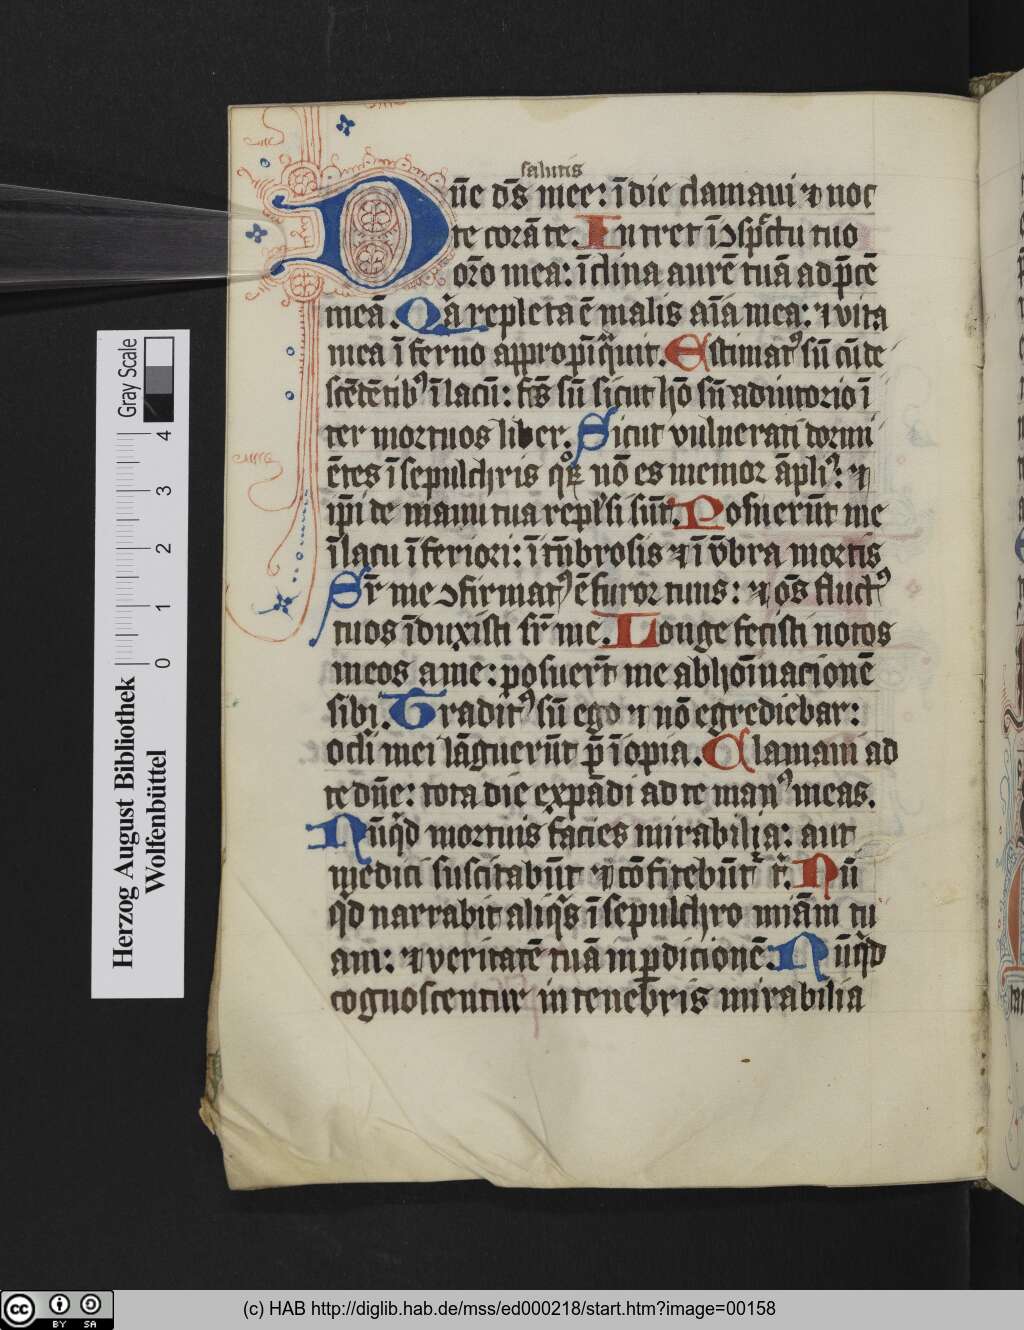 salutis
Dn̄e ds̄ mee: ī die clamaui ⁊ noc
te corā te. Intret ī ɔspc̄tu tuo
orō mea: īclina aurē tuā ad p̄cē
meā. Qͥa repleta ē malis aīa mea: ⁊ vita
mea īferno appropīqͣuit. Estimatꝰ sū cū de
scēdētibꝰ ī lacū: fc̄s sū sicut hō sn̄ adiutorio ī
ter mortuos liber. Sicut vulnerati dormi
ētes ī sepulchris qͦꝝ nō es memor āpliꝰ: ⁊
ip̄i de manu tua repl̓si sūt. Posuerūt me
ī lacu īferiori: ī tn̄brosis ⁊ ī v̄bra mortis
Sr̄ me ɔfirmatꝰ ē furor tuus: ⁊ os̄ fluctꝰ
tuos īduxisti sr̄ me. Longe fecisti notos
meos a me: posuer̄t me abhoīnacionē
sibi. Traditꝰ sū ego ⁊ nō egrediebar:
ocl̓i mei lāguerūt p̄ īopia. Clamaui ad
te dn̄e: tota die expādi ad te manꝰ meas.
Nūqͥd mortuis facies mirabilia: aut
medici suscitabūt ⁊ cōfitebūt̉ t̉. Nū
qͥd narrabit aliqͥs ī sepulchro miām tu
am: ⁊ veritatē tuā in ꝑdicionē. Nūqͥd
cognoscentur in tenebris mirabilia
Gray Scale
4
3
2
1
0
Herzog August Bibliothek
Wolfenbüttel
cc BY SA
(c) HAB http://diglib.hab.de/mss/ed000218/start.htm?image=00158